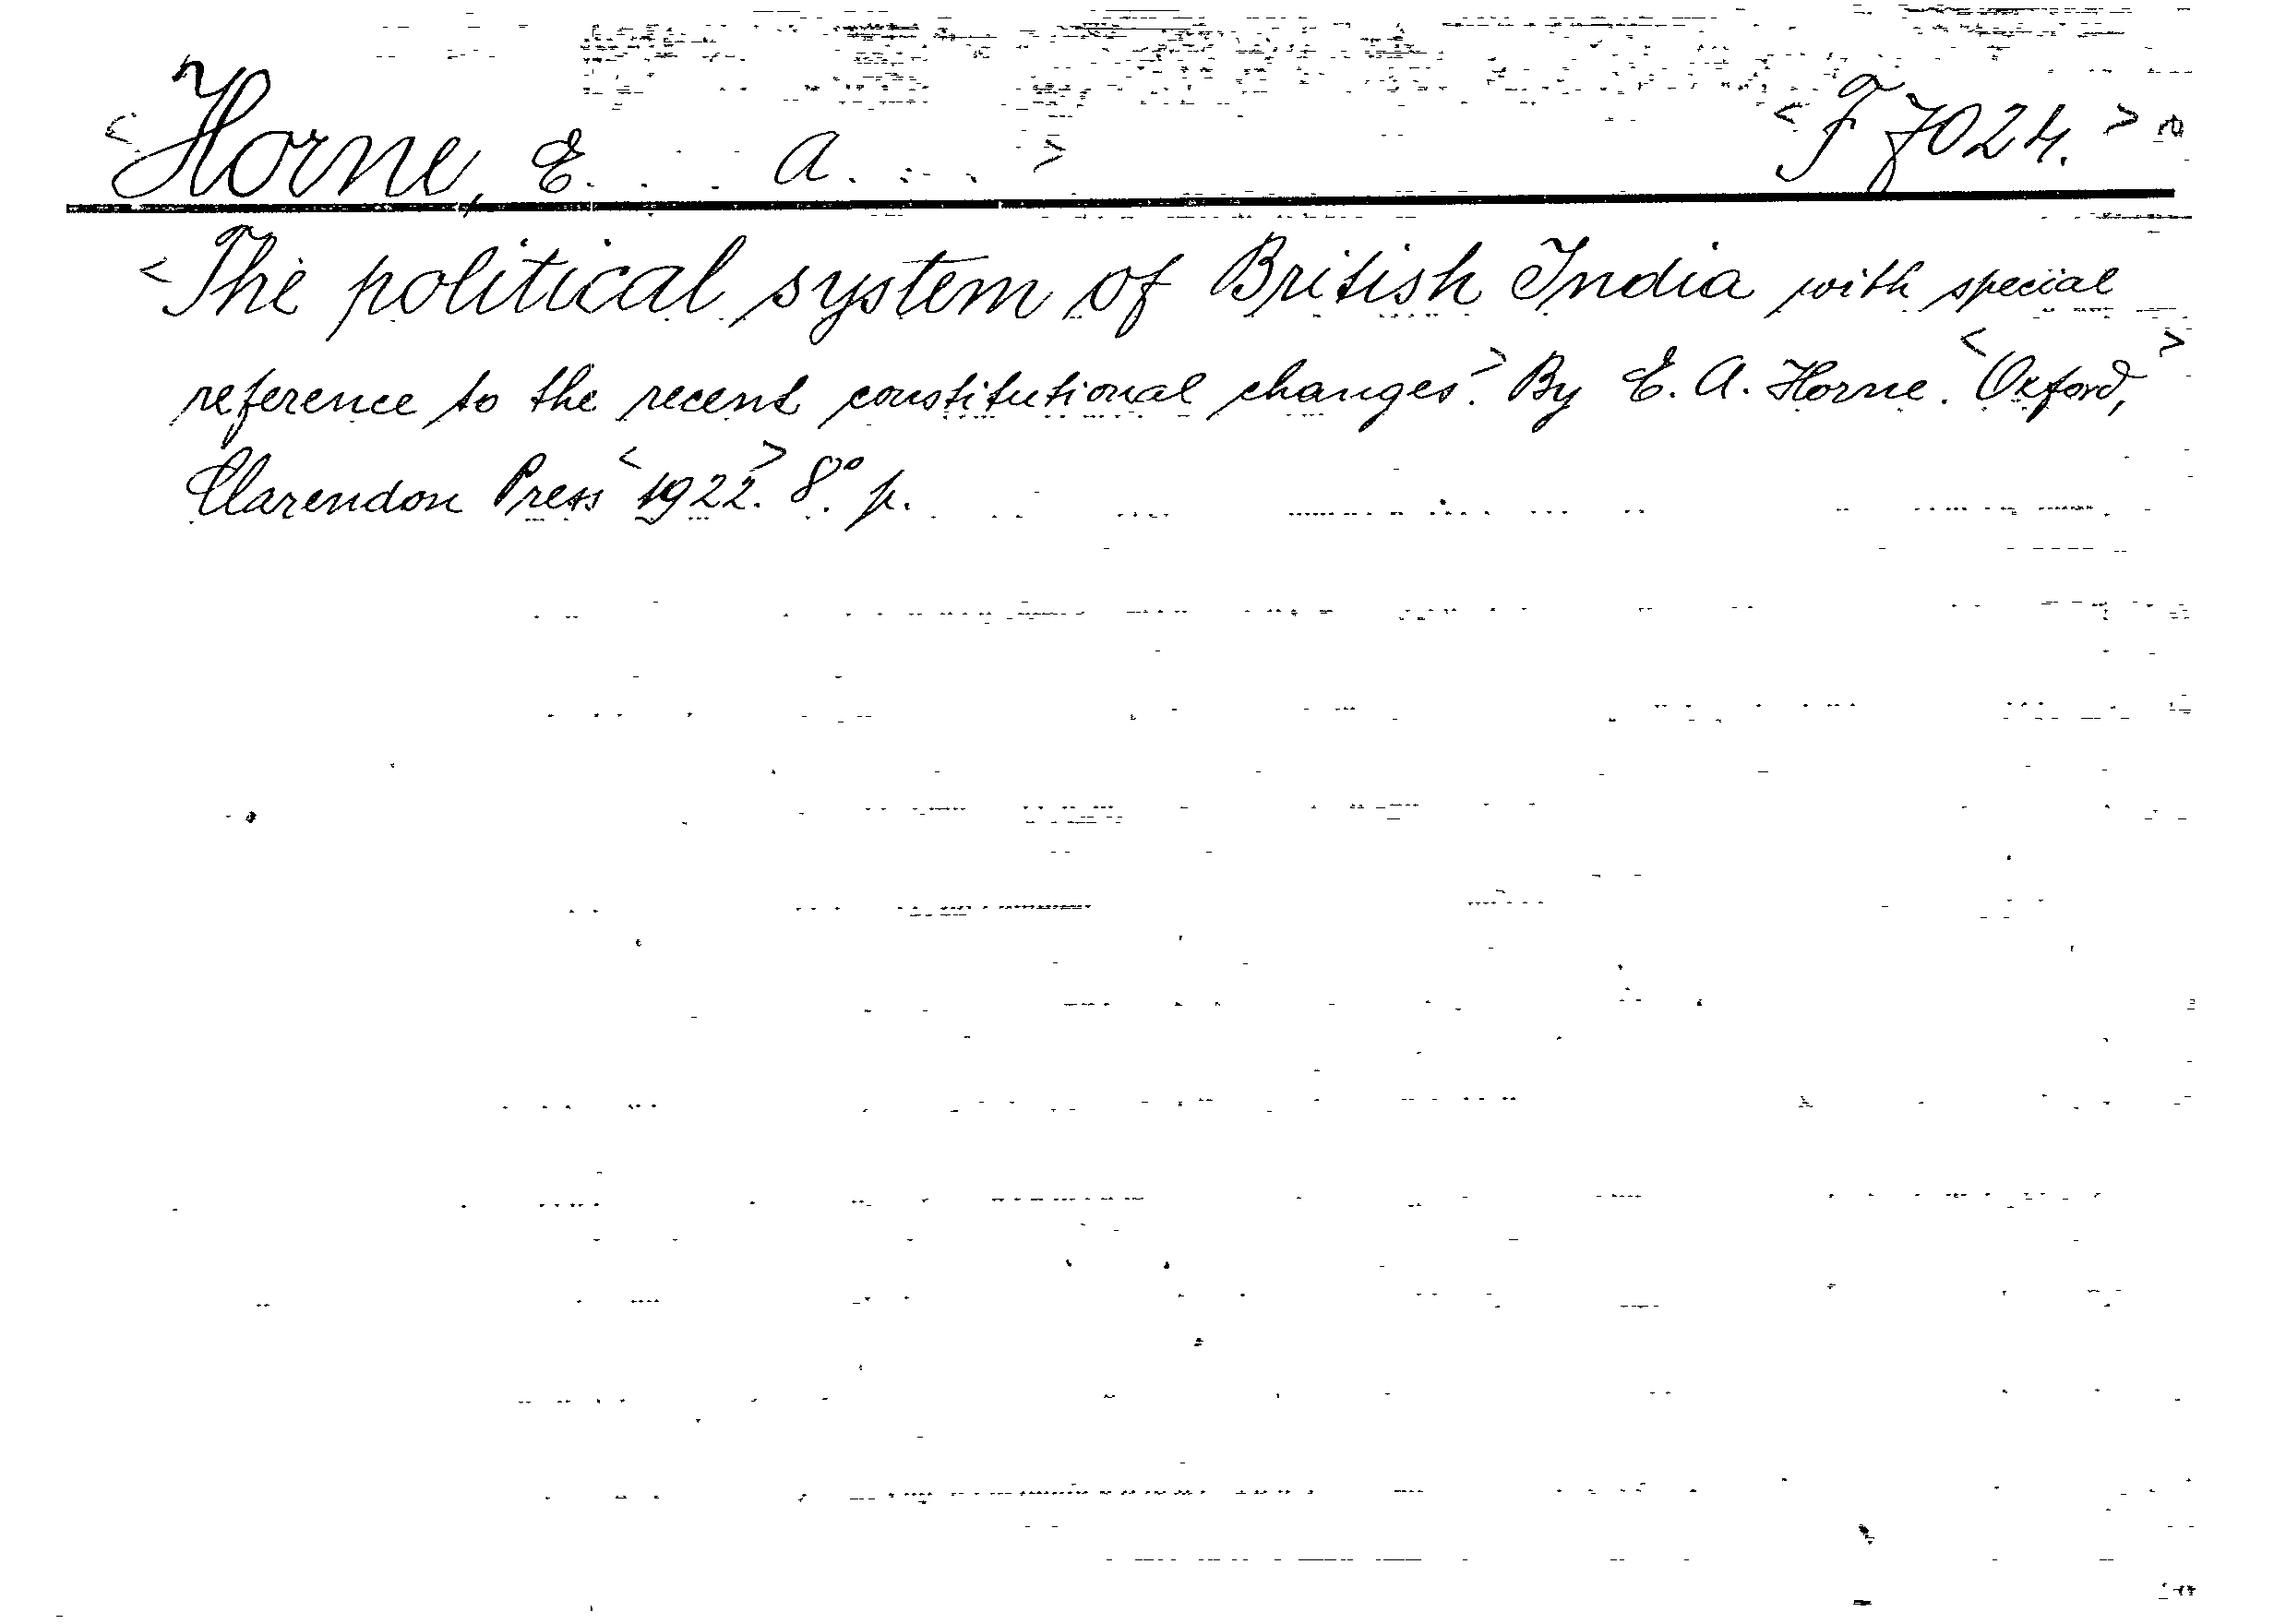 <Horne, E. . . . A. . . . > <F 7024.>
<The political system of British India with special
reference to the recent constitutional changes>. By E. A. Horne. <Oxford,>
Clarendon Press <1922>. 8°. p.